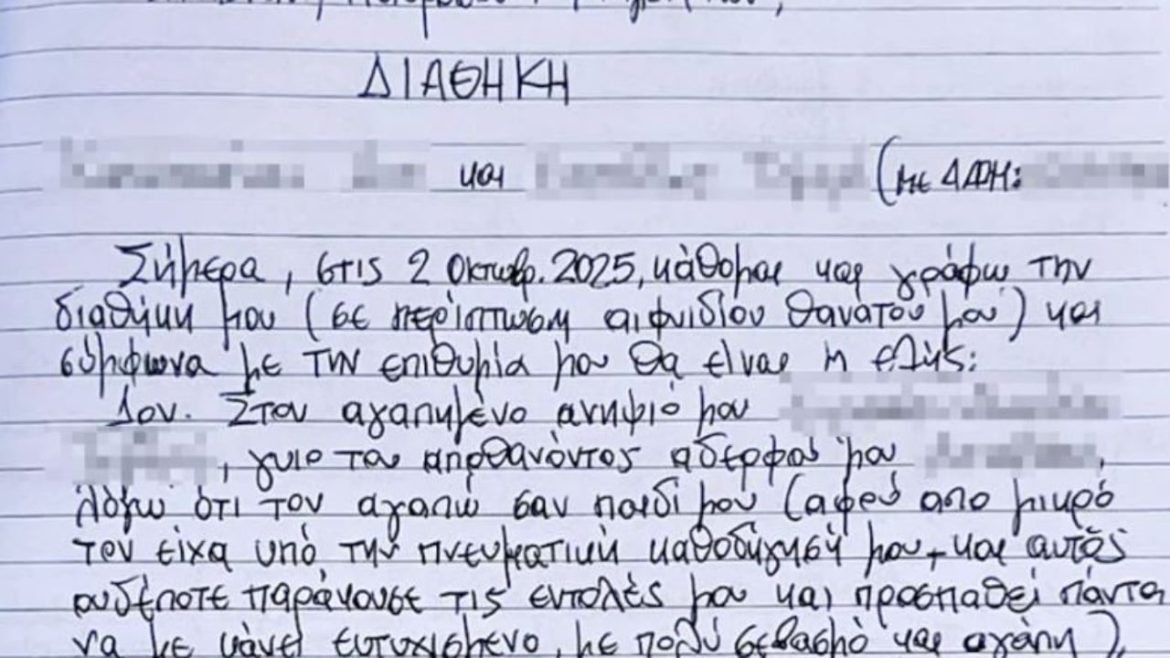 ΔΙΑΘΗΚΗ
και (με ΑΦΜ:
Σήμερα, στις 2 Οκτωβρ. 2025, κάθομαι και γράφω την
διαθήκη μου (σε περίπτωση αιφνιδίου θανάτου μου) και
σύμφωνα με την επιθυμία μου θα είναι η εξής:
1ον. Στον αγαπημένο ανηψιό μου
, γυιο του αποθανόντος αδερφού μου ,
λόγω ότι τον αγαπώ σαν παιδί μου (αφού απο μικρό
τον είχα υπό την πνευματική καθοδήγησή μου, και αυτός
ουδέποτε παράκουσε τις εντολές μου και προσπαθεί πάντα
να με κάνει ευτυχισμένο, με πολύ σεβασμό και αγάπη),